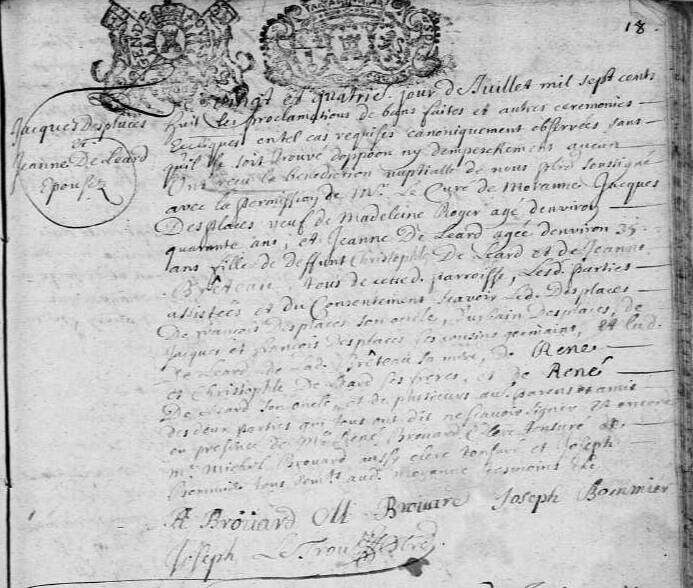 18
Jacques Desplaces
et
Jeanne De Leard
Epousez
vingt et quatrie. jour de Juillet mil sept cents
huit, les proclamations de bans faites et autres ceremonies
en tel cas requises canoniquement observées sans
qu'il se soit trouvé d'oppoon ny d'empeschement aucun
Ont receu la benediction nuptialle de nous pbre soussigné
avec la permission de Mr. Le Curé de Moranne Jacques
Desplaces veuf de Madeleine Roger agé d'environ
quarante ans, et Jeanne De Leard agée d'environ 35
ans fille de deffunt Christophle De Leard et de Jeanne
Brêteau, tous de cette d. parroisse, Lesd. parties
assistées et du Consentement scavoir Led. Desplaces
De francois Desplaces son oncle, Urbain Desplaces, de
Jacques et francois Desplaces ses cousins germains, et lad.
De Leard, de lad. Brêteau sa mere, de René
et Christophle De Leard ses freres, et de René
De Leard son oncle, et de plusieurs au. parens et amis
des deux parties qui tous ont dit ne scavoir signer
en presence de Mre. René Brouard Clerc tonsuré et
Mr. Michel Brouard aussy clerc tonsuré et Joseph
Bommier tous dem.ts aud. Moranne tesmoins
R Broüard M Brouard Joseph Bommier
Joseph Le Trou pbre.